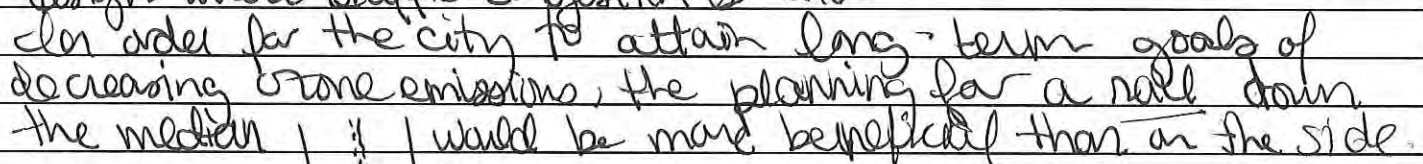 In order for the city to attain long-term goals of
decreasing ozone emissions, the planning for a rail down
the median, would be more beneficial than on the side.